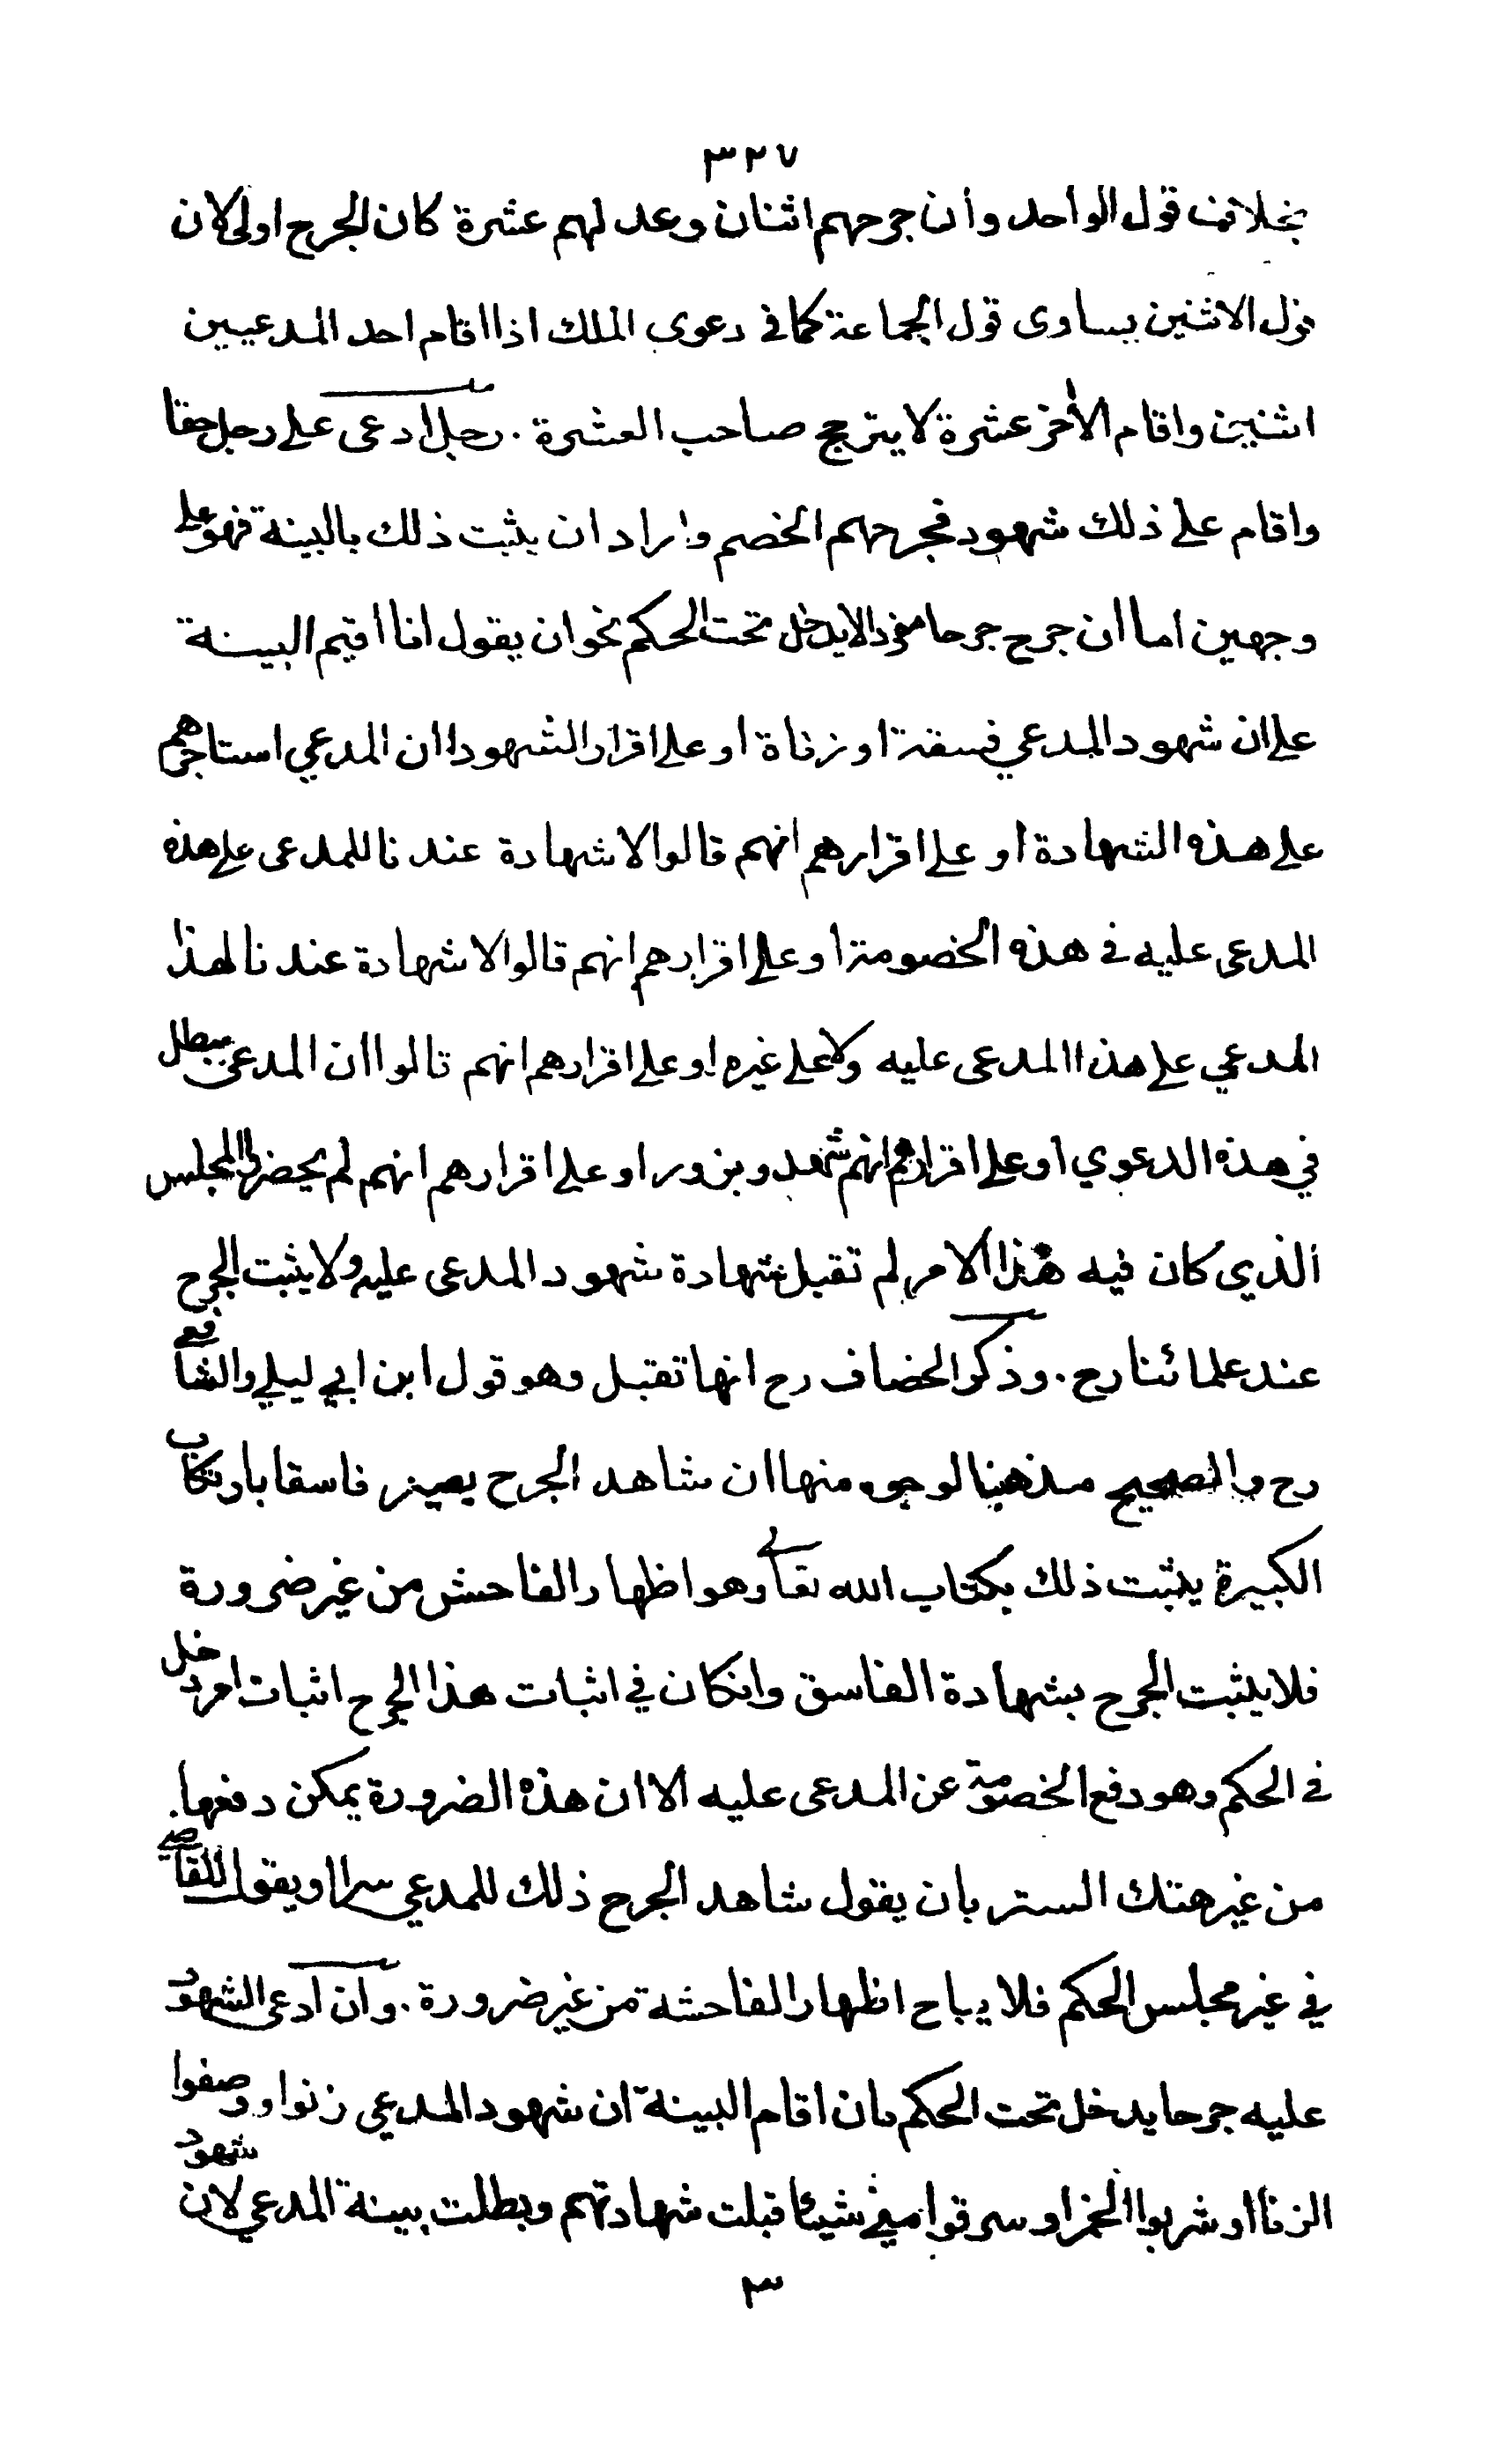 ٣٢٧
بخلاف قول الواحد وان جرحهم اثنان وعدلهم عشرة كان الجرح اولى لان
قول الاثنين يساوى قول الجماعة كما في دعوى الملك اذا اقام احد المدعيين
اثنين واقام الاٰخر عشرة لا يترجح صاحب العشرة . رجل ادعى على رجل حقا
واقام على ذلك شهود فجرحهم الخصم واراد ان يثبت ذلك بالبينة فهو على
وجهين اما ان جرح جرحا مفردا لا يدخل تحت الحكم نحو ان يقول انا اقيم البينة
على ان شهود المدعي فسقة او زناة او على اقرار الشهود ان المدعي استاجرهم
على هذه الشهادة او على اقرارهم انهم قالوا لا شهادة عندنا للمدعى على هذه
المدعى عليه في هذه الخصومة او على اقرارهم انهم قالوا لا شهادة عندنا لهذا
المدعي على هذا المدعى عليه ولا على غيره او على اقرارهم انهم قالوا ان المدعى مبطل
في هذه الدعوي او على اقرارهم انهم شهدوا بزور او على اقرارهم انهم لم يحضروا المجلس
الذي كان فيه هذا الامر لم تقبل شهادة شهود المدعى عليه ولا يثبت الجرح
عند علمائنا رح . وذكر الخصاف رح انها تقبل وهو قول ابن ابي ليلي والشافعي
رح والصحيح مذهبنا لوجوه منها ان شاهد الجرح يصير فاسقا بارتكاب
الكبيرة يثبت ذلك بكتاب الله تعالى وهو اظهار الفاحش من غير ضرورة
فلا يثبت الجرح بشهادة الفاسق وانكان في اثبات هذا الجرح اثبات امر دخل
في الحكم وهو دفع الخصومة عن المدعى عليه الا ان هذه الضرورة يمكن دفعها .
من غير هتك الستر بان يقول شاهد الجرح ذلك للمدعي سرا او يقول للقاضي
في غير مجلس الحكم فلا يباح اظهار الفاحشة من غير ضرورة . وان ادعى الشهود
عليه جرحا يدخل تحت الحكم بان اقام البينة ان شهود المدعي زنوا ووصفوا
الزنا او شربوا الخمر او سرقوا مني شيئا قبلت شهادتهم وبطلت بينة المدعي لان شهود
٣